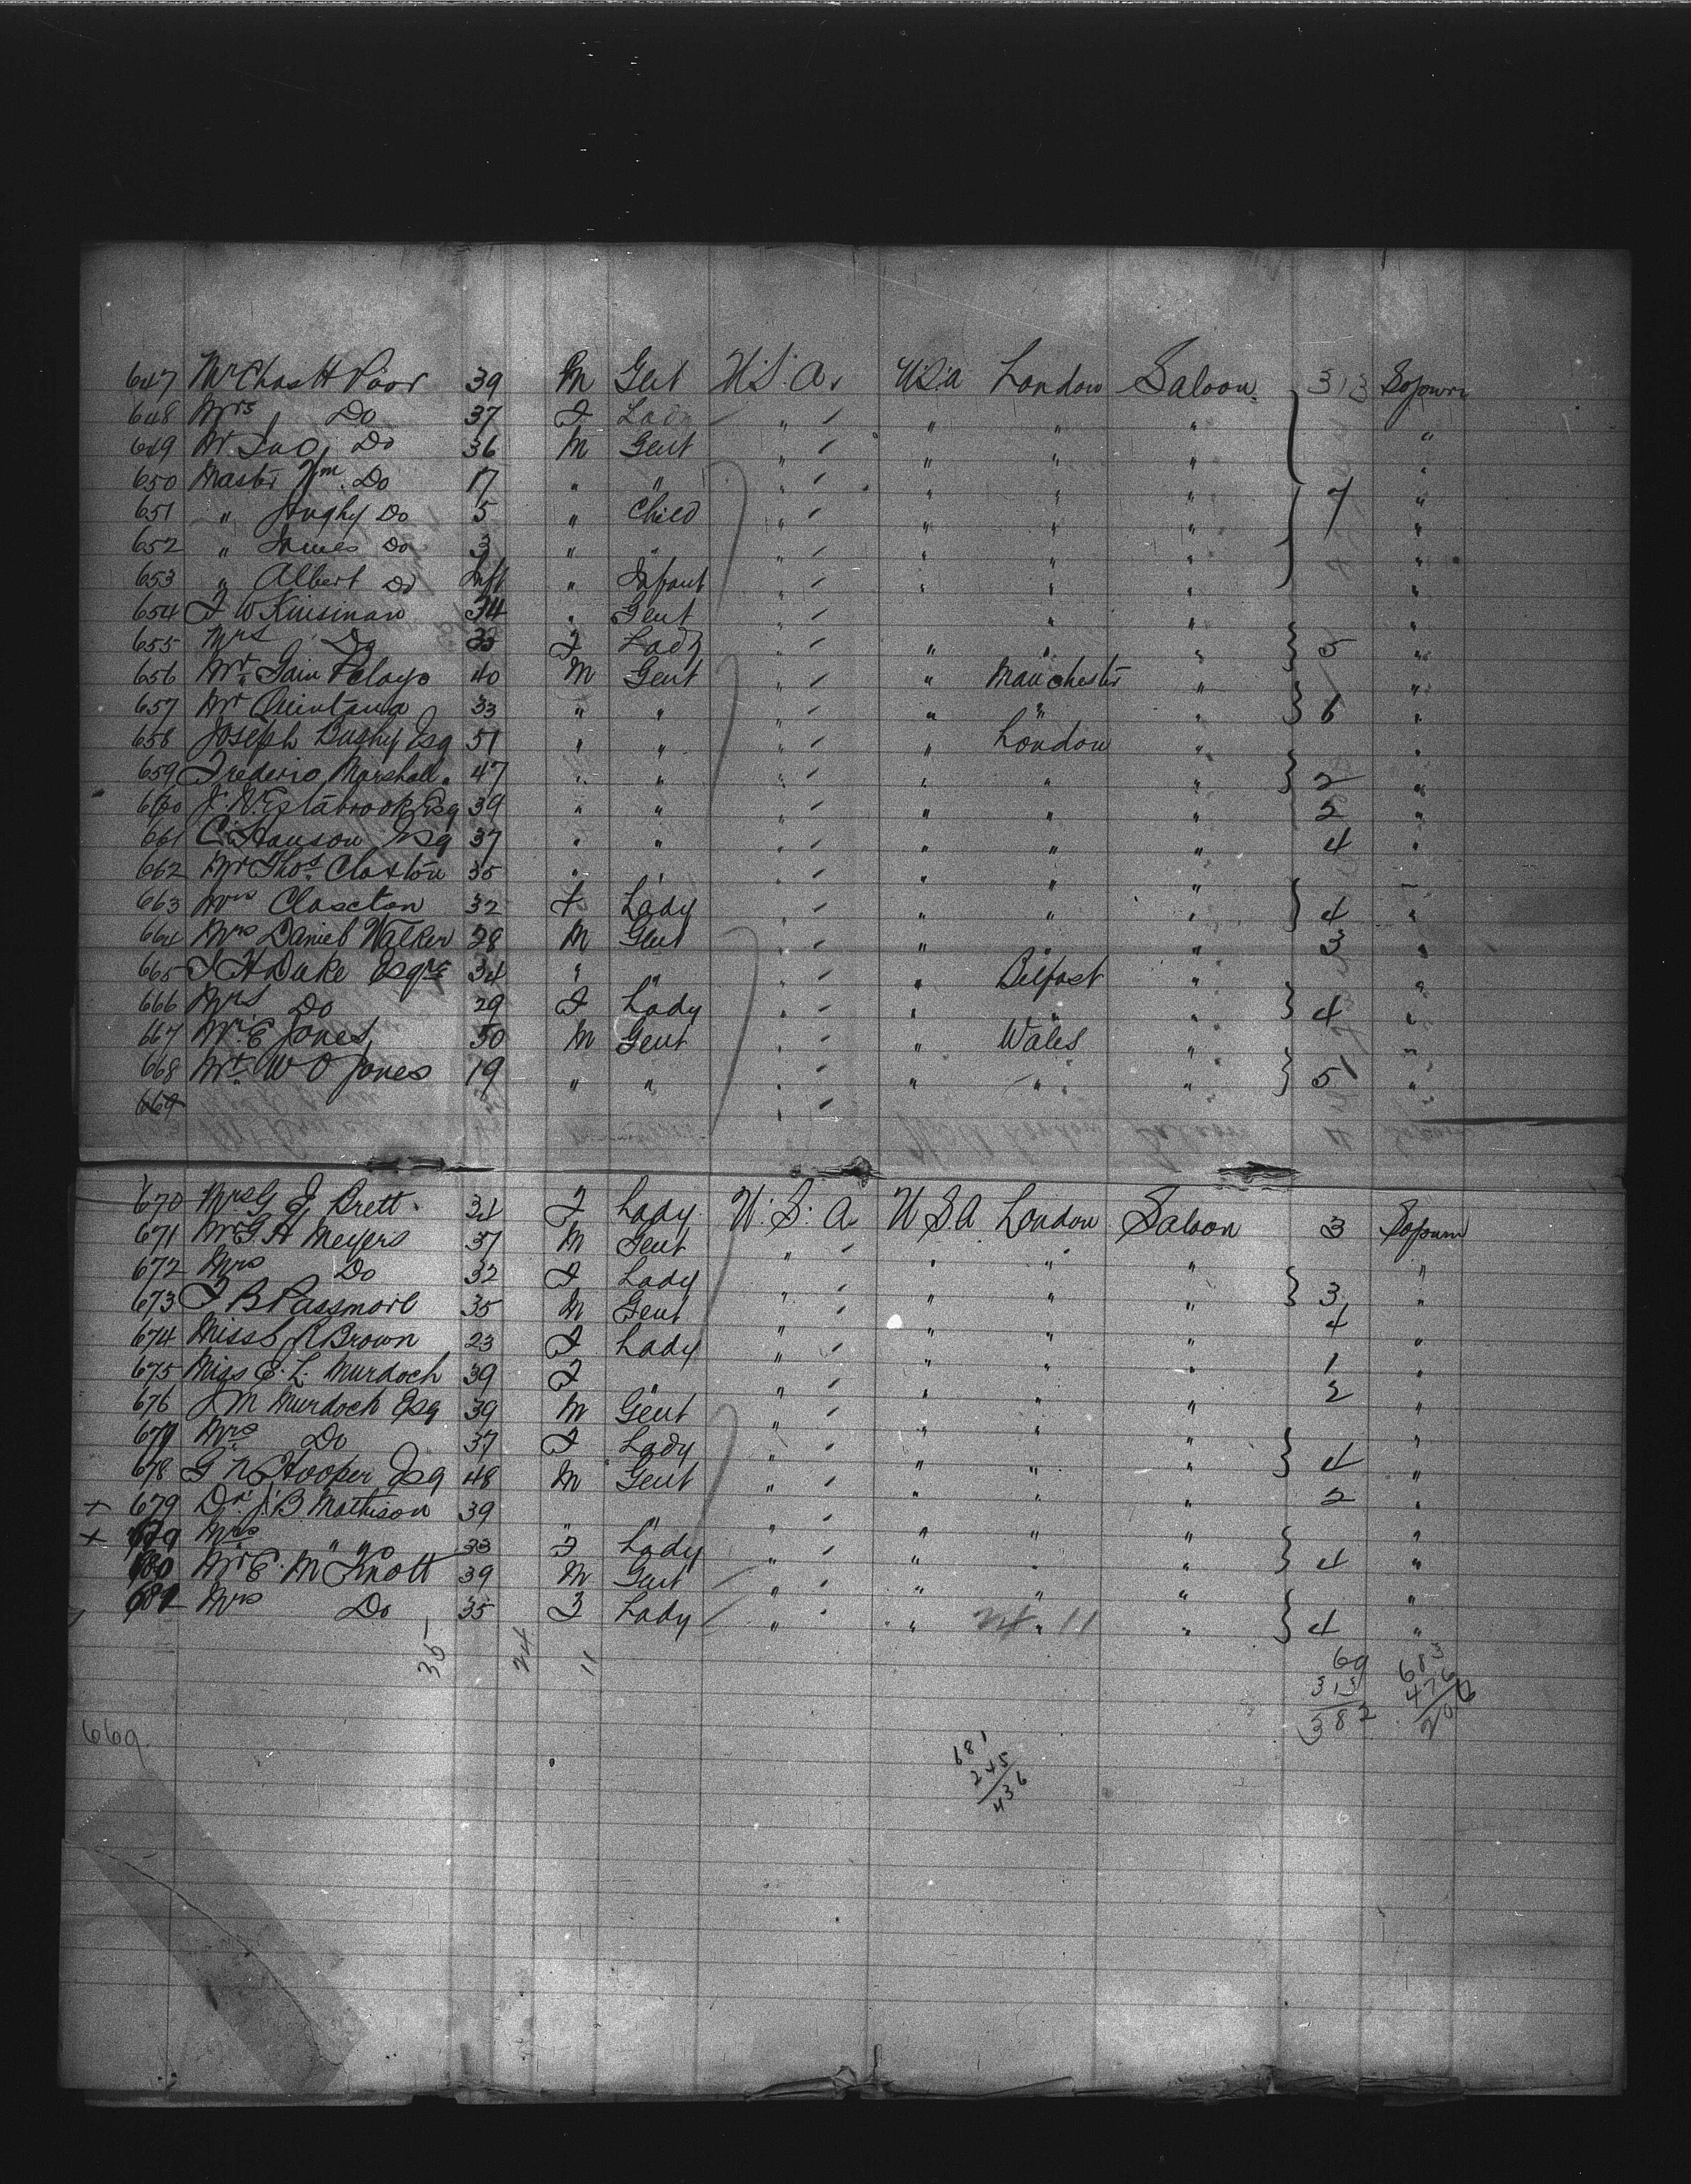 647 Mr Chas H Poor 39 M Gent U.S.A. USA London Saloon 313 Sojourn
648 Mrs Do 37 F Lady " " " " "
649 Mr Jno Do 36 M Gent " " " " "
650 Master Wm. Do 17 " " " " " " 7 "
651 " Do 5 " Child " " " " "
652 " James Do 3 " " " " " " "
653 " Albert Do Inft " Infant " " " " "
654 F W Kinsman 34 " Gent " " " "
655 Mrs Do 33 F Lady " " " " 5 "
656 Mr. Pelayo 40 M Gent " " Manchester " "
657 Mr Quintana 33 " " " " " " 6 "
658 Joseph Bushy Esq 51 " " " " London " "
659 Frederic Marshall. 47 " " " " " " 2 "
660 Estabrook Esq 39 " " " " " " 2 "
661 C. Hanson Esq 37 " " " " " " 4 "
662 Mr Thos. Claxton 35 " " " " " "
663 Mrs Claxton 32 F Lady " " " " 4 "
664 Mrs Daniel Walker 28 M Gent " " " " 3 "
665 Duke Esqre 34 " " " " Belfast " "
666 Mrs Do 29 F Lady " " " " 4 "
667 Mr. E Jones 50 M Gent " " Wales " "
668 Mr. W O Jones 19 " " " " " " 5 "
669
670 Mrs G J Brett. 34 F Lady U.S.A USA London Saloon 3 Sojourn
671 Mr G. H Meyers 37 M Gent " " " " "
672 Mrs Do 32 F Lady " " " " 3 "
673 F B Passmore 35 M Gent " " " " 4 "
674 Miss Brown 23 F Lady " " " " 1 "
675 Miss E. L. Murdoch 39 F " " " " " 2 "
676 J M Murdoch Esq 39 M Gent " " " " "
677 Mrs Do 37 F Lady " " " " 4 "
678 G N Hooper Esq 48 M Gent " " " " 2 "
+ 679 Dr. J. B. Mathison 39 " " " " " " "
+ 679 Mrs " " 33 F Lady " " " " 4 "
680 Mr E. M Knott 39 M Gent " " " " "
681 Mrs Do 35 F Lady " " 24. 11 " 4 "
35 24 11
69 683
313 476
382
669.
681
245
436